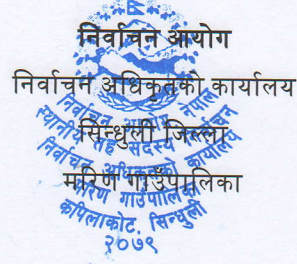 निर्वाचन आयोग
निर्वाचन अधिकृतको कार्यालय
सिन्धुली जिल्ला
मरिण गाउँपालिका
निर्वाचन आयोग, नेपाल
स्थानीय तह सदस्य निर्वाचन
निर्वाचन अधिकृतको कार्यालय
मरिण गाउँपालिका
कपिलाकोट, सिन्धुली
२०७९